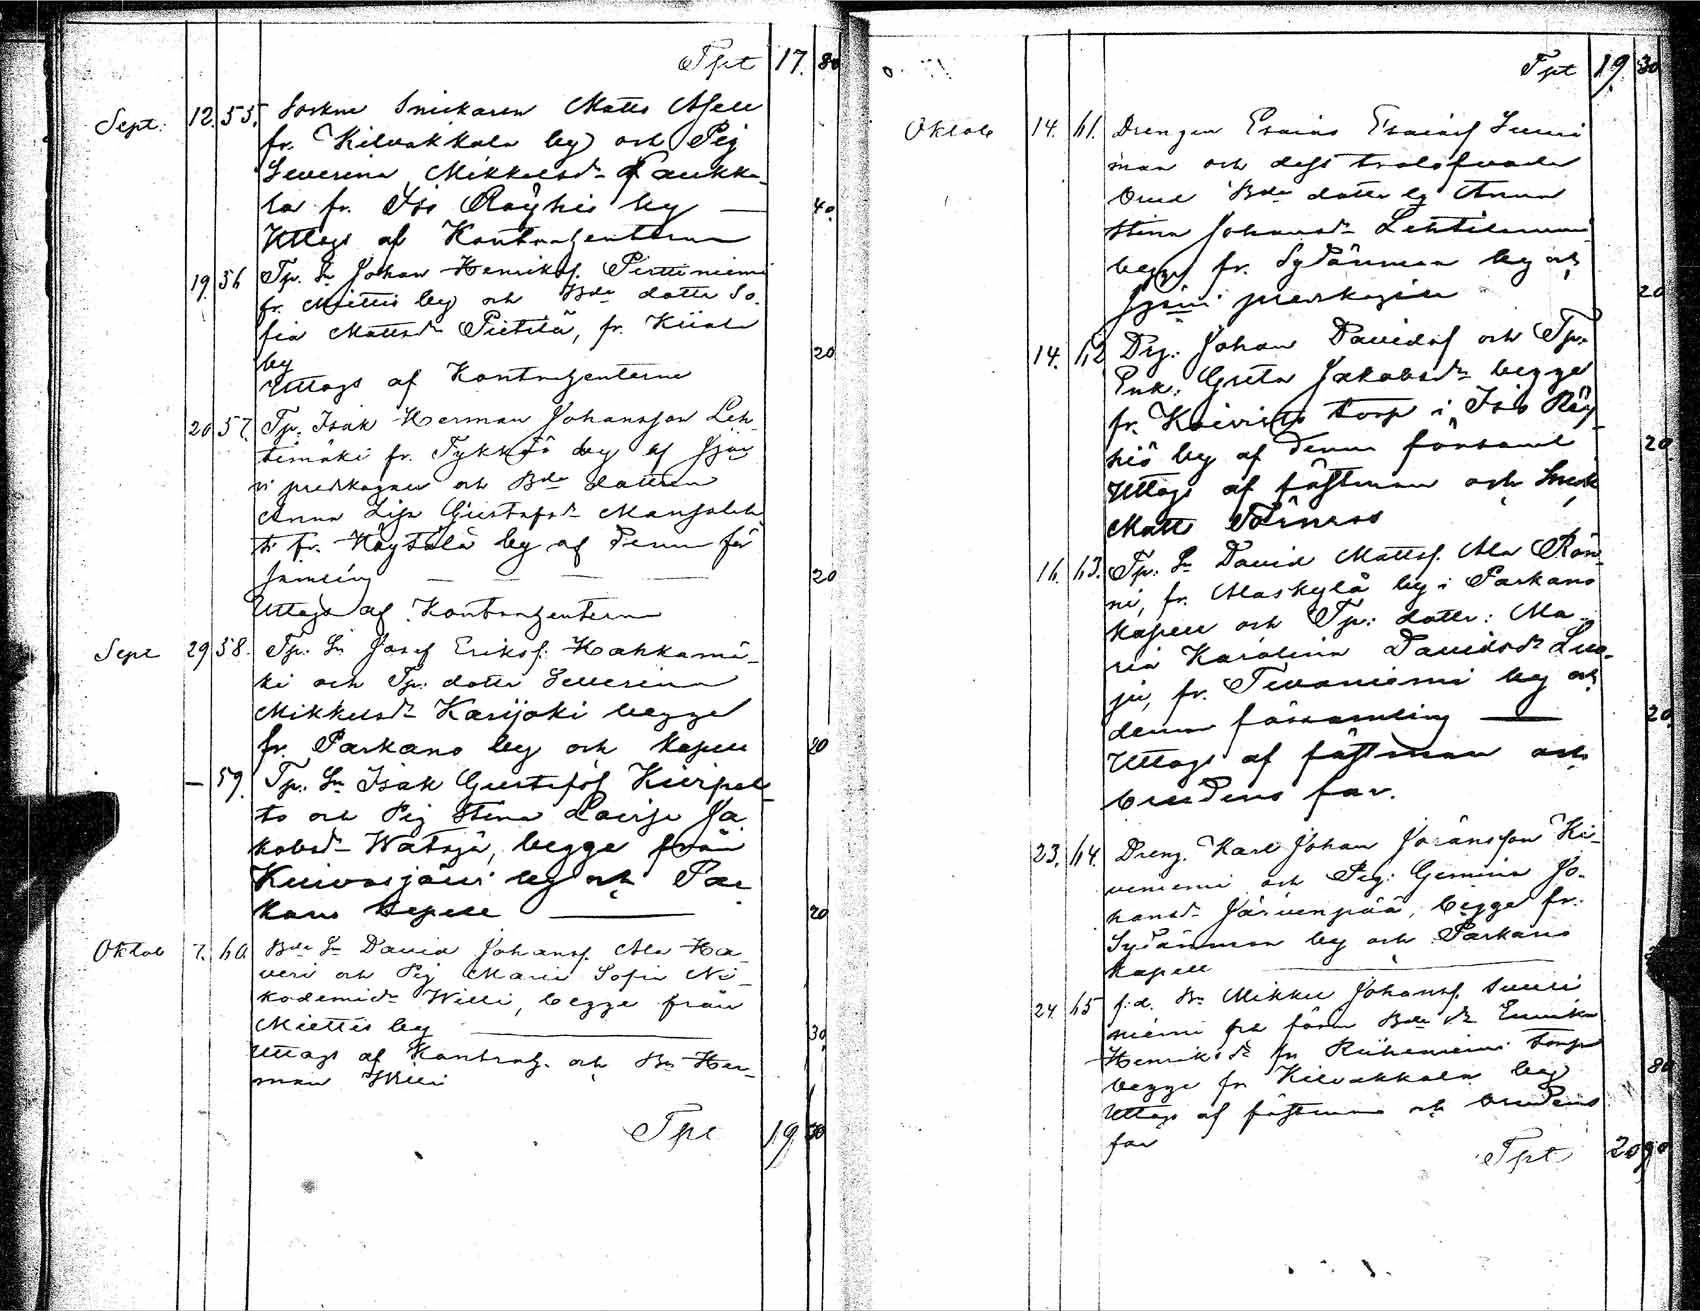 Tpt 17. 80
Sept. 12. 55. Sockne Snickaren Matts Asell
fr. Kilvakkala by och Pig
Severina Mikkelsdr Paukku-
la fr. Iso Röyhiö by — 40.
Uttags af Kontrahenterne
19. 56 Tp. Sn Johan Henriksf. Perttiniemi
fr. Miettis by och Bde dottr So-
fia Mattsdr Pietilä, fr. Kiiala
by 20
Uttags af Kontrahenterne
20 57. Tp. Isak Herman Johansson Leh-
timäki fr. by af
predkagner och Bde dottren
Anna Lisa Gustafsdr Mansoleh-
ti fr. Höytölä by af denna för
samling — — — 20
Uttags af Kontrahenterne
Sept 29 58. Tp. Sn Josef Eriksf. Hahkamä-
ki och Tp. dottr Severina
Mikkelsdr Karijoki begge
fr. Parkano by och kapell 20
— 59. Tp. Sn Isak Gustafsf
to och Pig Stina Lovisa Ja
kobsdr begge från
Kuivasjärvi by och Par
kano kapell — 20
Oktob 7. 60. Bde Sn David Johansf. Ala Ha-
veri och Pig Maria Sofia Ni-
kodemidr Willi, begge från
Miettis by — 30
Uttags af Kontrah. och Bn Her-
man Willi
Tpt 19. 30
Tpt 19. 30
Oktob 14. 61. Drengen Esaias Esaiasf Suuri
man och dess trolofvade
Brud Bde dotter Anna
Stina Johansdr Lehtilammi
begge fr. Sydänmaa by och
predkagner 20
14. 62 Drg. Johan Davidsf och Tp.
Enk. Greta Jakobsdr begge
fr. Koivisto torp i Iso Röy-
hiö by af denna församl 20
Uttags af fästman och Snick
Matts Törnroos
16. 63. Tp. Sn David Mattsf. Ala Rön-
ni, fr. Alaskylä by i Parkano
kapell och Tp. dottr: Ma-
ria Karolina Davidsdr Luo-
ju, fr. Tevaniemi by och
denna församling — 20.
Uttags af fästman och
brudens far.
23. 64. Dreng. Karl Johan Göransson Ki-
viniemi och Pig: Gemina Jo-
hansdr Järvenpää, begge fr.
Sydänmaa by och Parkano
kapell —
24. 65 f.d. Bn Mikkel Johansf. Suuri
niemi och förra Bde dr Eunika
Henriksdr fr Riihiniemi torp
begge fr Kilvakkala by 80
Uttags af fästman och brudens
far
Tpt 20 90